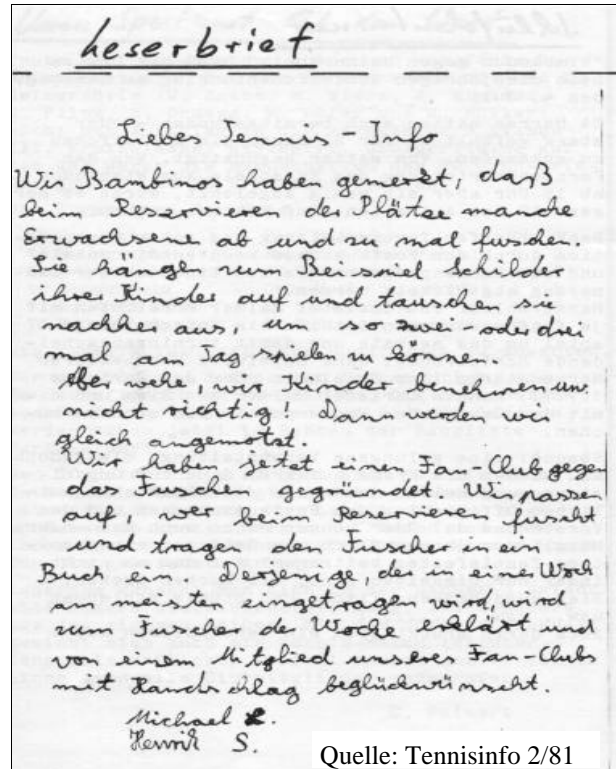 Leserbrief
Liebes Tennis-Info
Wir Bambinos haben gemerkt, daß
beim Reservieren der Plätze manche
Erwachsene ab und zu mal fuschen.
Sie hängen zum Beispiel Schilder
ihrer Kinder auf und tauschen sie
nachher aus, um so zwei oder drei
mal am Tag spielen zu können.
Aber wehe, wir Kinder benehmen uns
nicht richtig! Dann werden wir
gleich angemotzt.
Wir haben jetzt einen Fan-Club gegen
das Fuschen gegründet. Wir passen
auf, wer beim Reservieren fuscht
und tragen den Fuscher in ein
Buch ein. Derjenige, der in der Woche
am meisten eingetragen wird, wird
zum Fuscher der Woche erklärt und
von einem Mitglied unseres Fan-Clubs
mit Handschlag beglückwünscht.
Michael L.
Henrik S.
Quelle: Tennisinfo 2/81